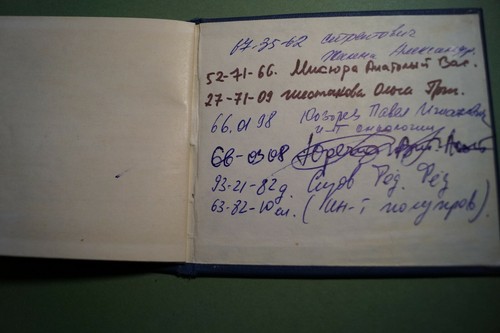 67-35-62 Стратович
Жанна Александр.
52-71-66. Мисюра Анатолий Вас.
27-71-09 Шестакова Ольга Григ.
66.01 98 Павел Игнатович
и-т онкологии
66-0308
93-21-82 д. Сизов Фёд. Фёд
63-82-10 сл. (ин-т полупров).